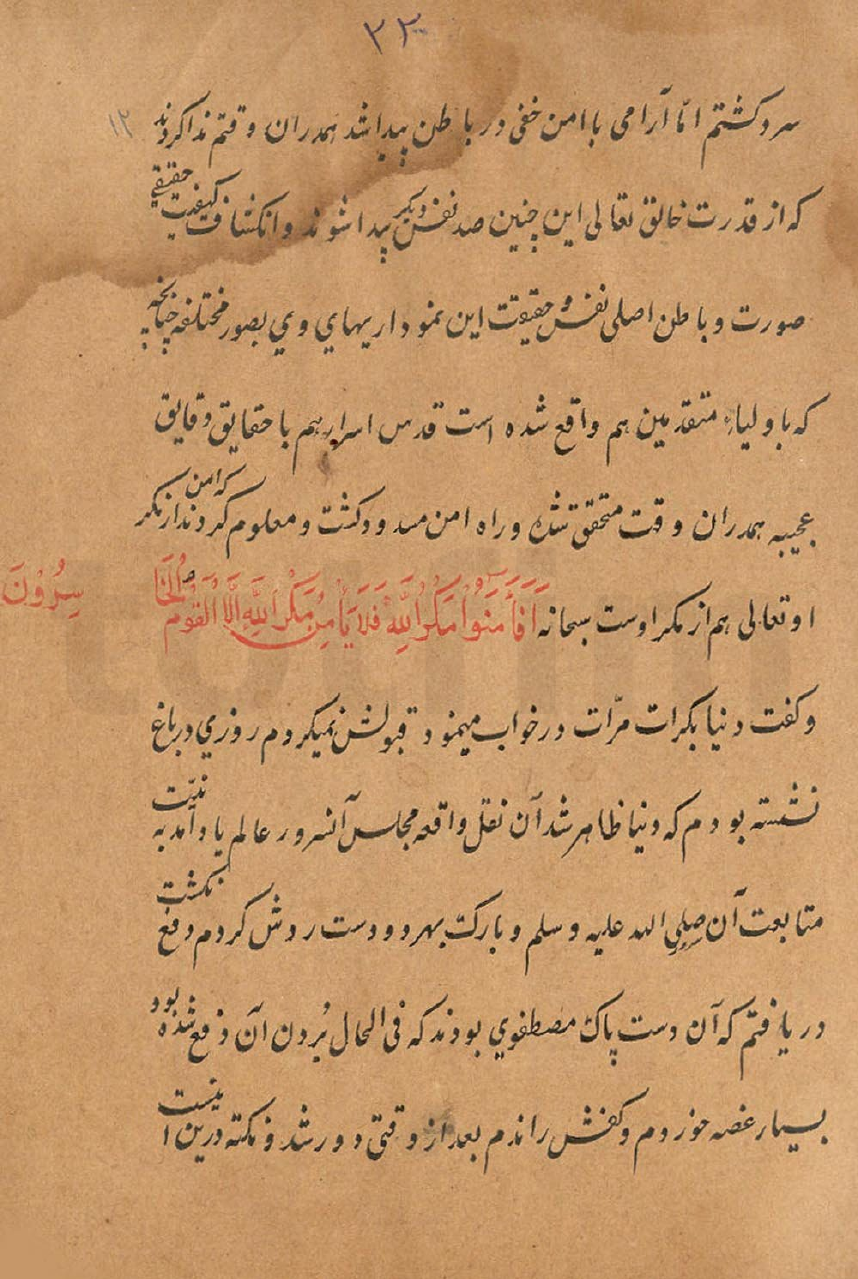 ٣٣
سر و کشتم امّا آرامی با امن خفی در باطن پیدا شد همدران وقتم ندا کردند
١٢
که از قدرت خالق تعالی این چنین صد نفس دیکر پیدا شوند و انکشاف کیفیت حقیقی
صورت و باطن اصلی نفس و حقیقت این نمودار یهاي وي بصور مختلفه چنانچه
که باولیاء متقدمین هم واقع شده است قدس اسرارهم با حقایق دقایق
عجیبه همدران وقت متحقق شد و راه امن مسدود کشت و معلوم کردند که امن از مکر
او تعالی هم از مکر اوست سبحانه اَفَأَمَنُوا مَكْرَ اللّٰهِ فَلَا يَأْمِنُ مَكْرَ اللّٰهِ اِلَّا الْقَوْمُ الْخَاسِرُوْنَ
و کفت دنیا بکرات مرّات در خواب مینمود قبولش نمیکردم روزي در باغ
نشسته بودم که دنیا ظاهر شد آن نقل واقعه مجلس آنسرور عالم یاد آمد به نیّت
متابعت آن صلی الله علیه و سلم و بارک بهر دو دست ردش کردم دفع نکشت
دریافتم که آن دست پاک مصطفوي بودند که فی الحال بُردن آن دفع شده بود
بسیار غصه خوردم و کفش راندم بعد از وقتی دور شد و نکته درین ا ینست